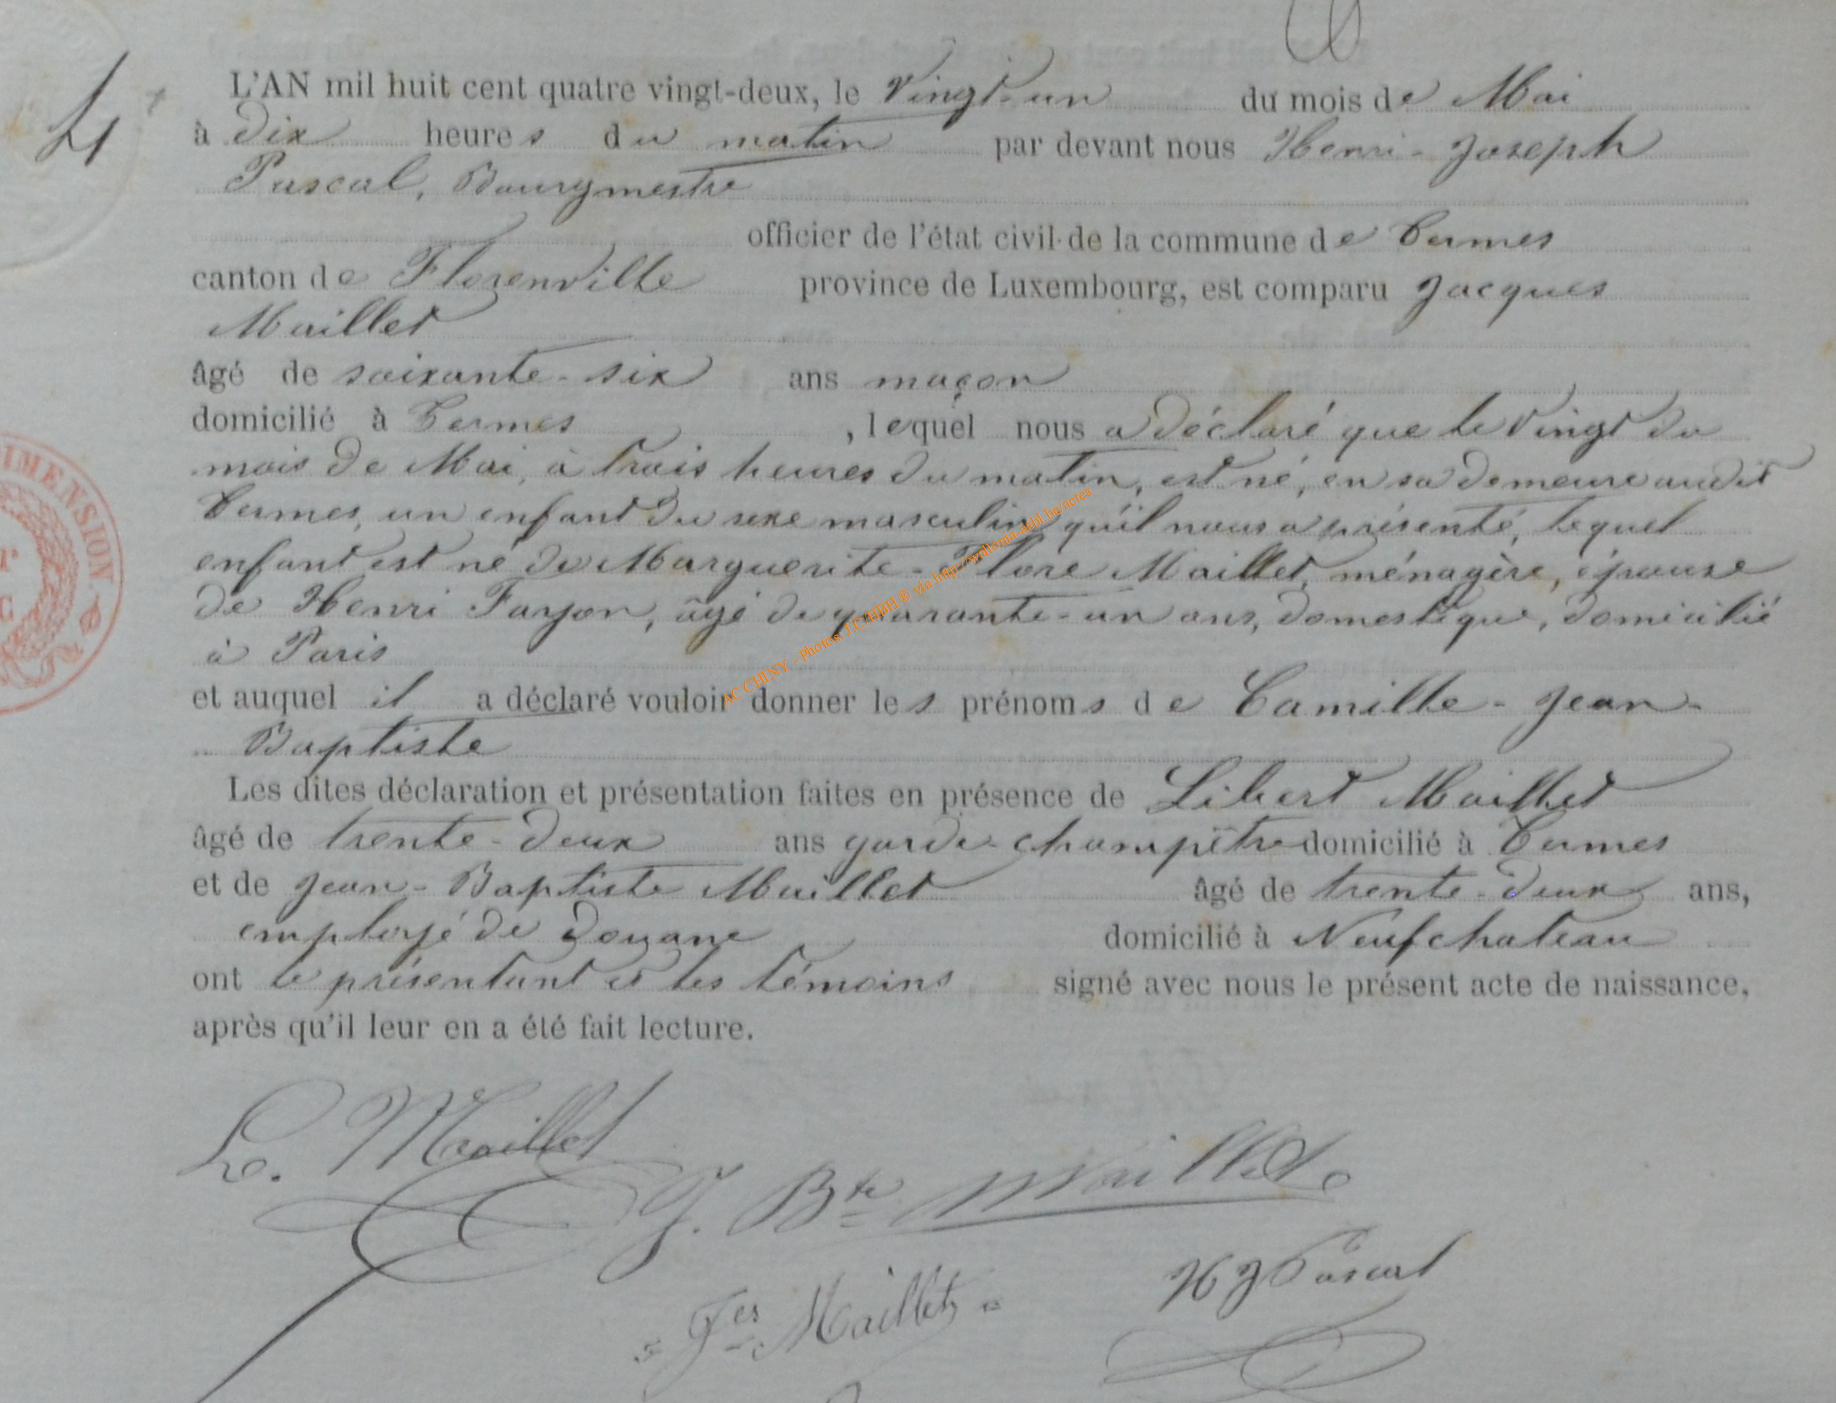 4
L'AN mil huit cent quatre vingt-deux, le Vingt-un du mois de Mai
à dix heures du matin par devant nous Henri-Joseph
Pascal, Bourgmestre
officier de l'état civil de la commune de Termes
canton de Florenville province de Luxembourg, est comparu Jacques
Maillet
âgé de soixante-six ans maçon
domicilié à Termes , lequel nous a déclaré que le Vingt du
mois de Mai, à trois heures du matin, est né, en sa demeure audit
Termes, un enfant du sexe masculin qu'il nous a présenté, lequel
enfant est né de Marguerite-Flore Maillet, ménagère, épouse
de Henri Farjon, âgé de quarante-un ans, domestique, domicilié
à Paris
et auquel il a déclaré vouloir donner les prénoms de Camille-Jean-
Baptiste
Les dites déclaration et présentation faites en présence de Libert Maillet
âgé de trente-deux ans garde-champêtre domicilié à Termes
et de Jean-Baptiste Maillet âgé de trente-deux ans,
employé de douane domicilié à Neufchateau
ont le présentant et les témoins signé avec nous le présent acte de naissance,
après qu'il leur en a été fait lecture.
L. Maillet
J. Bte Maillet
Jes Maillet
HJ Pascal
DIMENSION
AC CHINY - Photos J.C. ® via http://